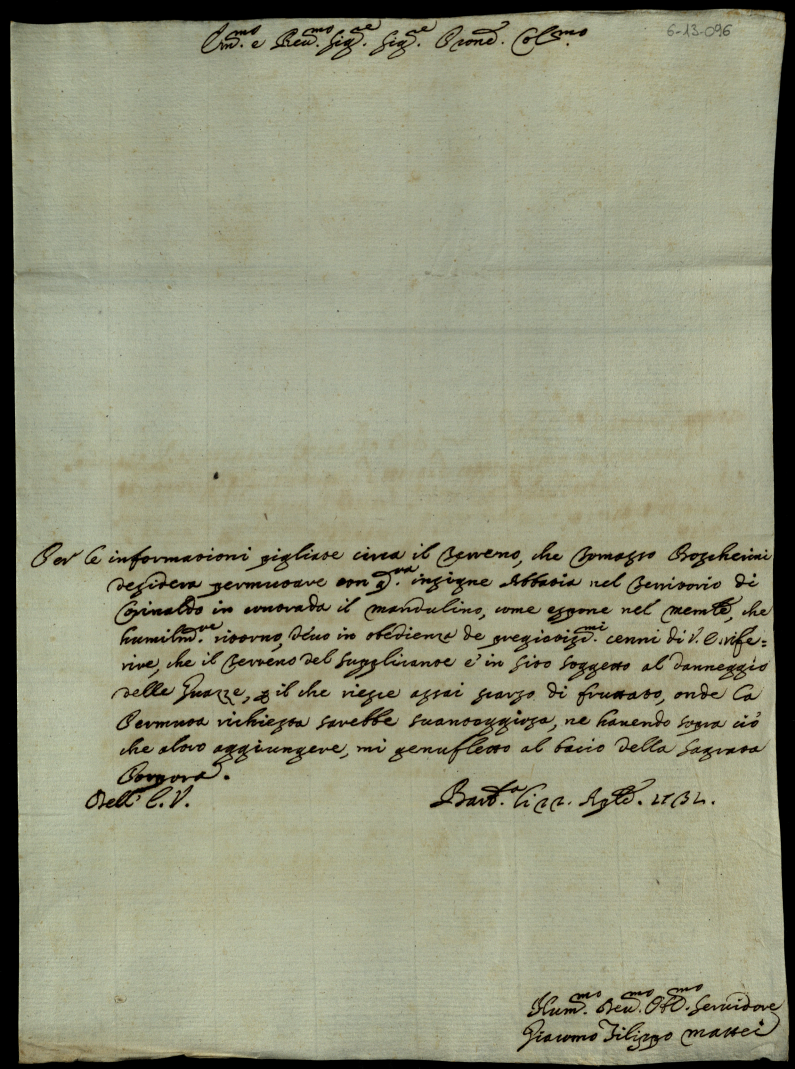 6-13-096
Em.mo e Rev.mo Sig.re Sig.re Prone. Col.mo
Per le informazioni pigliate circa il Terreno, che Tomasso Boscherini
desidera permutare con q.ta insigne Abbazia nel Territorio di
Corinaldo in contrada il mandulino, come espone nel memle, che
humilm.te ritorno, devo in obedienza de pregiatiss.mi cenni di V. E. rife=
rire, che il Terreno del supplicante è in sito soggetto al danneggio
delle Guazze, il che riesce assai scarso di fruttato, onde la
Permuta richiesta sarebbe svantaggiosa, ne havendo sopra ciò
che altro aggiungere, mi genufletto al bacio della Sagrata
Porpora.
Dell' E. V.
Barb.a li 22. Aple. 1731.
Hum.mo Dev.mo Obb.mo Servidore
Giacomo Filippo Mattei